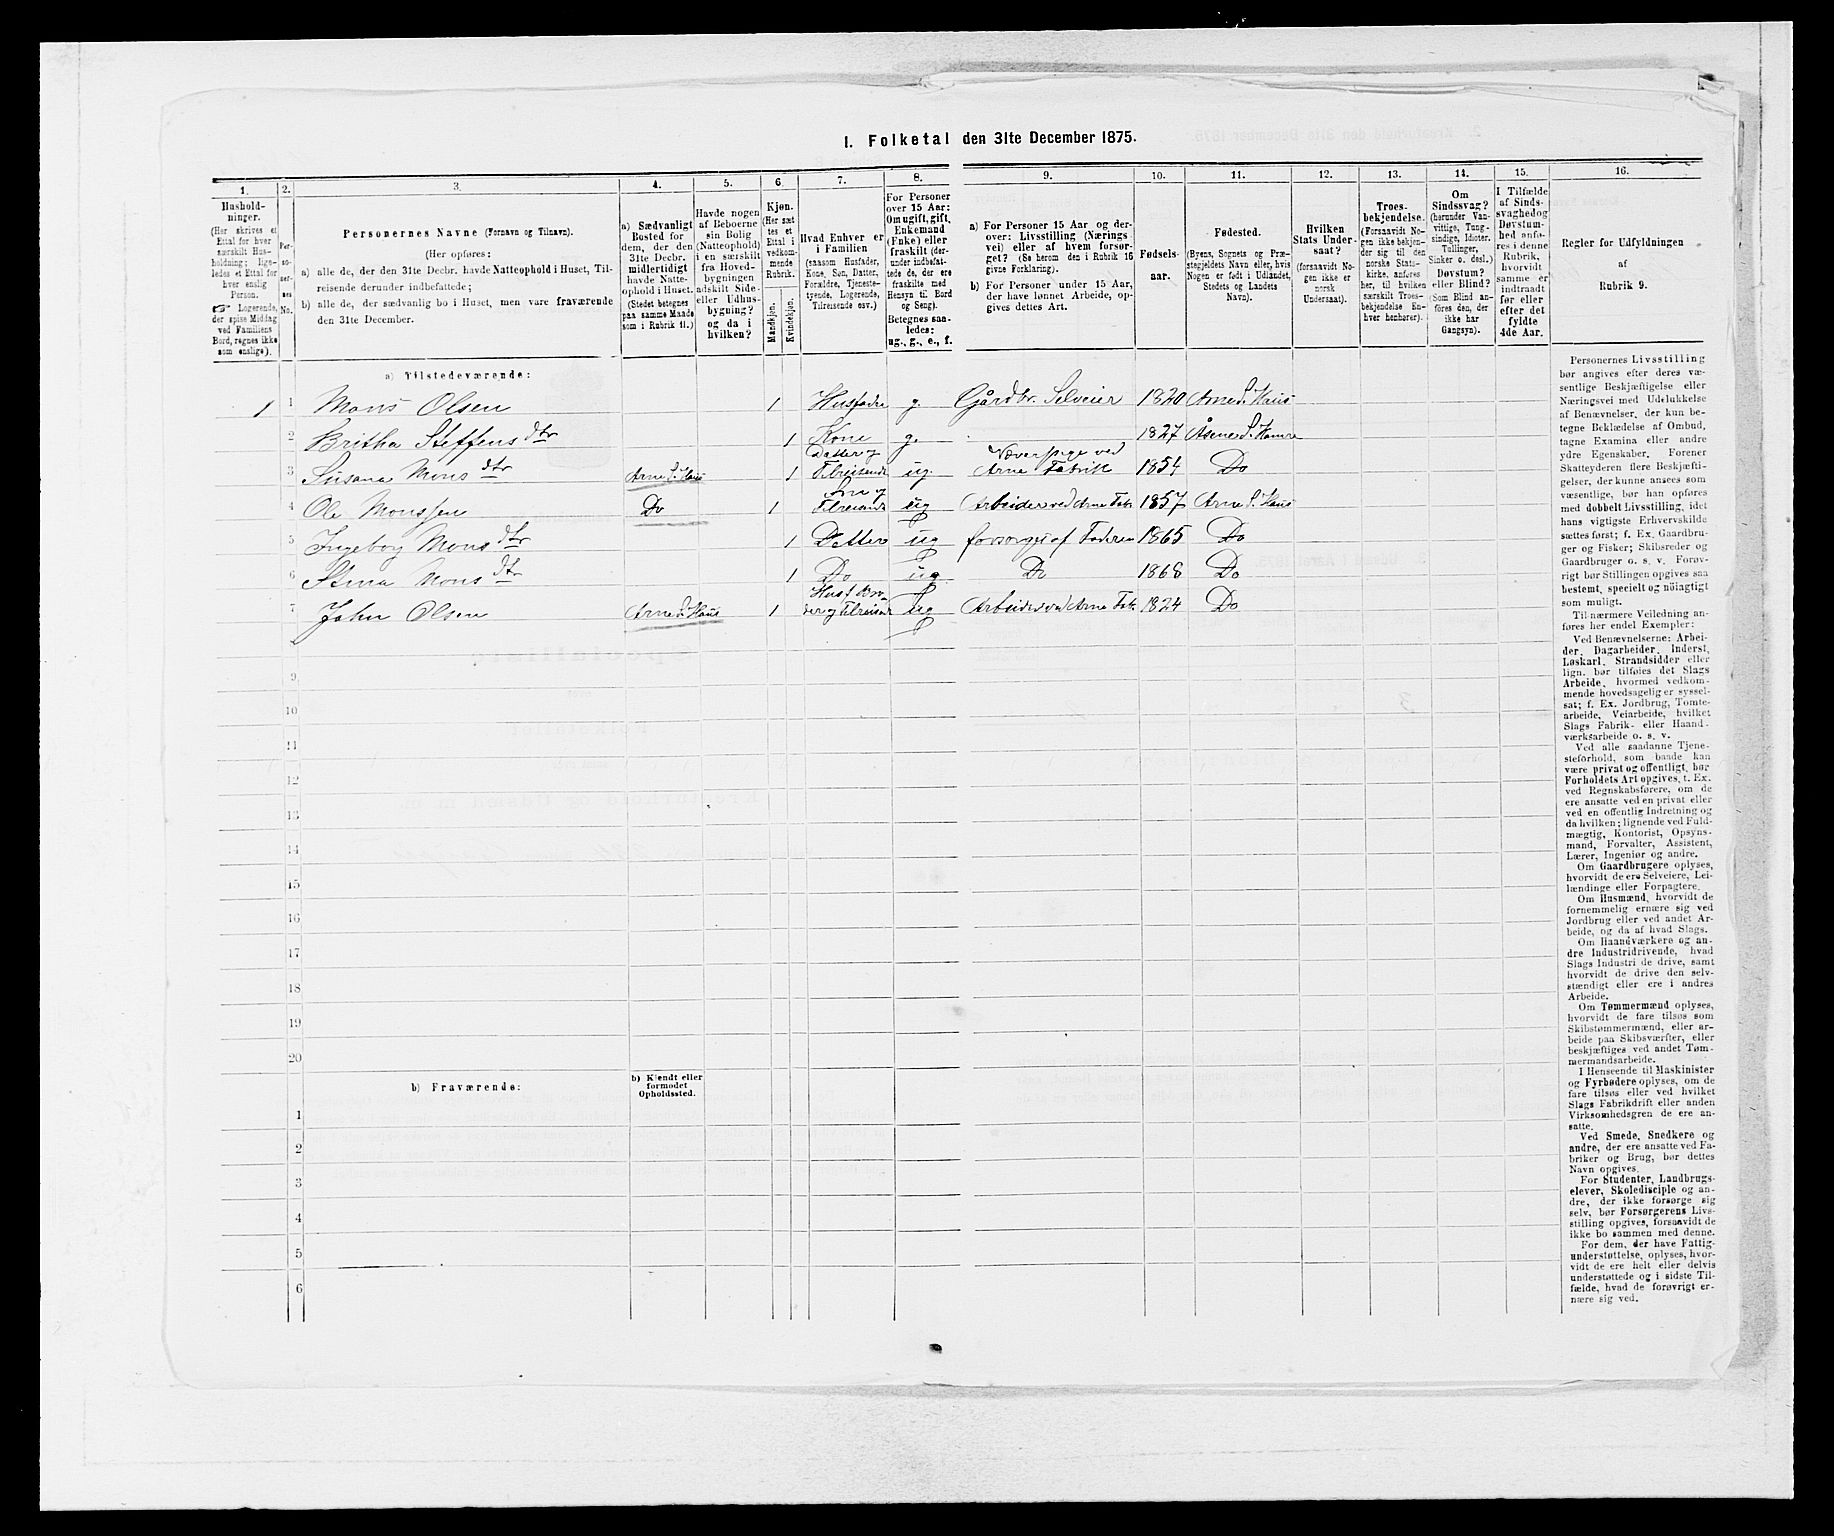 1. Folketal den 31te December 1875.
1. 2. 3. 4. 5. 6. 7. 8. 9. 10. 11. 12. 13. 14. 15. 16.
Hushold-
ninger.
(Her skrives et
Ettal for hver
særskilt Hus-
holdning; lige-
ledes et Ettal for
hver enslig
Person.
☞ Logerende,
der spise Middag
ved Familiens
Bord, regnes ikke
som enslige).
Per-
so-
ner-
nes
No.
Personernes Navne (Fornavn og Tilnavn).
(Her opføres:
a) alle de, der den 31te Decbr. havde Natteophold i Huset, Til-
reisende derunder indbefattede;
b) alle de, der sædvanlig bo i Huset, men vare fraværende
den 31te December.
a) Sædvanligt
Bosted for
dem, der den
31te Decbr.
midlertidigt
havde Natte-
ophold i Huset.
(Stedet betegnes
paa samme Maade
som i Rubrik 11.)
Havde nogen
af Beboerne
sin Bolig
(Natteophold)
i en særskilt
fra Hoved-
bygningen
adskilt Side-
eller Udhus-
bygning?
og da i
hvilken?
Kjøn.
(Her sæt-
tes et
Ettal i
vedkom-
mende
Rubrik.
Mandkjøn.
Kvindekjøn.
Hvad Enhver er
i Familien
(saasom Husfader,
Kone, Søn, Datter,
Forældre, Tjeneste-
tyende, Logerende,
Tilreisende osv.)
For Personer
over 15 Aar:
Om ugift, gift,
Enkemand
(Enke) eller
fraskilt (der-
under indbefat-
tede de, der ere
fraskilte med
Hensyn til Bord
og Seng).
Betegnes saa-
ledes:
ug., g., e., f.
a) For Personer 15 Aar og der-
over: Livsstilling (Nærings-
vei) eller af hvem forsør-
get? (Se herom den i Rubrik 16
givne Forklaring).
b) For Personer under 15 Aar,
der have lønnet Arbeide, op-
gives dettes Art.
Fødsels-
aar.
Fødested.
(Byens, Sognets og Præ-
stegjeldets Navn eller, hvis
Nogen er født i Udlandet,
Stedets og Landets
Navn).
Hvilken
Stats Under-
saat?
(forsaavidt No-
gen ikke er
norsk
Undersaat).
Troes-
bekjendelse.
(Forsaavidt No-
gen ikke bekjen-
der sig til den
norske Stats-
kirke, anføres
her, til hvilken
særskilt Troes-
bekjendelse En-
hver henhører).
Om
Sindssvag?
(herunder Van-
vittige, Tung-
sindige, Idioter,
Tullinger,
Sinker o. desl.)
Døvstum?
eller Blind?
(Som Blind an-
føres den, der
ikke har
Gangsyn).
I Tilfælde
af Sinds-
svaghed og
Døvstum-
hed anfø-
res i denne
Rubrik,
hvorvidt
samme er
indtraadt
før eller
efter det
fyldte
4de Aar.
Regler for Udfyldningen
af
Rubrik 9.
a) Tilstedeværende:
1 1 Mons Olsen 1 Husfader g. Gårdbr. Selveier 1820 Arne S. Haus
2 Britha Steffensdtr 1 Kone g. 1827 Åsene S. Hamre
3 Susana Monsdtr Arne S. Haus 1 Datter og Tilreisende ug Væverpige ved Arne Fabrik 1854 Do
4 Ole Monssen Do 1 Søn og Tilreisende ug Arbeider ved Arne Fabr. 1857 Arne S. Haus
5 Ingeborg Monsdtr 1 Datter ug forsørges af Faderen 1865 Do
6 Stina Monsdtr 1 Do ug Do 1868 Do
7 John Olsen Arne S. Haus 1 Husf. Broder og Tilreisende ug Arbeider ved Arne Fabr. 1824 Do
9
10
11
12
13
14
15
16
17
18
19
20
b) Fraværende:
b) Kjendt eller
formodet
Opholdssted.
1
2
3
4
5
6
Personernes Livsstilling
bør angives efter deres væ-
sentlige Beskjæftigelse eller
Næringsvei med Udelukkelse
af Benævnelser, der kun be-
tegne Beklædelse af Ombud,
tagne Examina eller andre
ydre Egenskaber. Forener
Skatteyderen flere Beskjæfti-
gelser, der kunne ansees som
væsentlige, bør han opføres
med dobbelt Livsstilling, idet
hans vigtigste Erhvervskilde
sættes først; f. Ex. Gaardbru-
ger og Fisker; Skibsreder og
Gaardbruger o. s. v. Forøv-
rigt bør Stillingen opgives saa
bestemt, specielt og nøiagtigt
som muligt.
Til nærmere Veiledning an-
føres her endel Exempler:
Ved Benævnelserne: Arbei-
der, Dagarbeider, Inderst,
Løskarl, Strandsidder eller
lign. bør tilføies det Slags
Arbeide, hvormed vedkom-
mende hovedsagelig er syssel-
sat; f. Ex. Jordbrug, Tomte-
arbeide, Veiarbeide, hvilket
Slags Fabrik- eller Haand-
værksarbeide o. s. v.
Ved alle saadanne Tjene-
steforhold, som baade kan
være privat og offentligt, bør
Forholdets Art opgives, t. Ex.
ved Regnskabsførere, om de
ere ansatte ved en privat eller
ved en offentlig Indretning og
da hvilken; lignende ved Fuld-
mægtig, Kontorist, Opsyns-
mand, Forvalter, Assistent,
Lærer, Ingeniør og andre.
Om Gaardbrugere oplyses,
hvorvidt de ere Selveiere, Lei-
lændinge eller Forpagtere.
Om Husmænd, hvorvidt de
fornemmelig ernære sig ved
Jordbrug eller ved andet Ar-
beide, og da af hvad Slags.
Om Haandværkere og an-
dre Industridrivende, hvad
Slags Industri de drive, samt
hvorvidt de drive den selv-
stændigt eller ere i andres
Arbeide.
Om Tømmermænd oplyses,
hvorvidt de fare tilsøs som
Skibstømmermænd, eller ar-
beide paa Skibsværfter, eller
beskjæftiges ved andet Tøm-
mermandsarbeide.
I Henseende til Maskinister
og Fyrbødere oplyses, om de
fare tilsøs eller ved hvilket
Slags Fabrikdrift eller anden
Virksomhedsgren de ere an-
satte.
Ved Smede, Snedkere og
andre, der ere ansatte ved Fa-
briker og Brug, bør dettes
Navn opgives.
For Studenter, Landbrugs-
elever, Skoledisciple og an-
dre, der ikke forsørge sig
selv, bør Forsørgerens Livs-
stilling opgives, forsaavidt de
ikke bo sammen med denne.
For dem, der have Fattig-
understøttelse, oplyses, hvor-
vidt de ere helt eller delvis
understøttede og i sidste Til-
fælde, hvad de forøvrigt er-
nære sig ved.